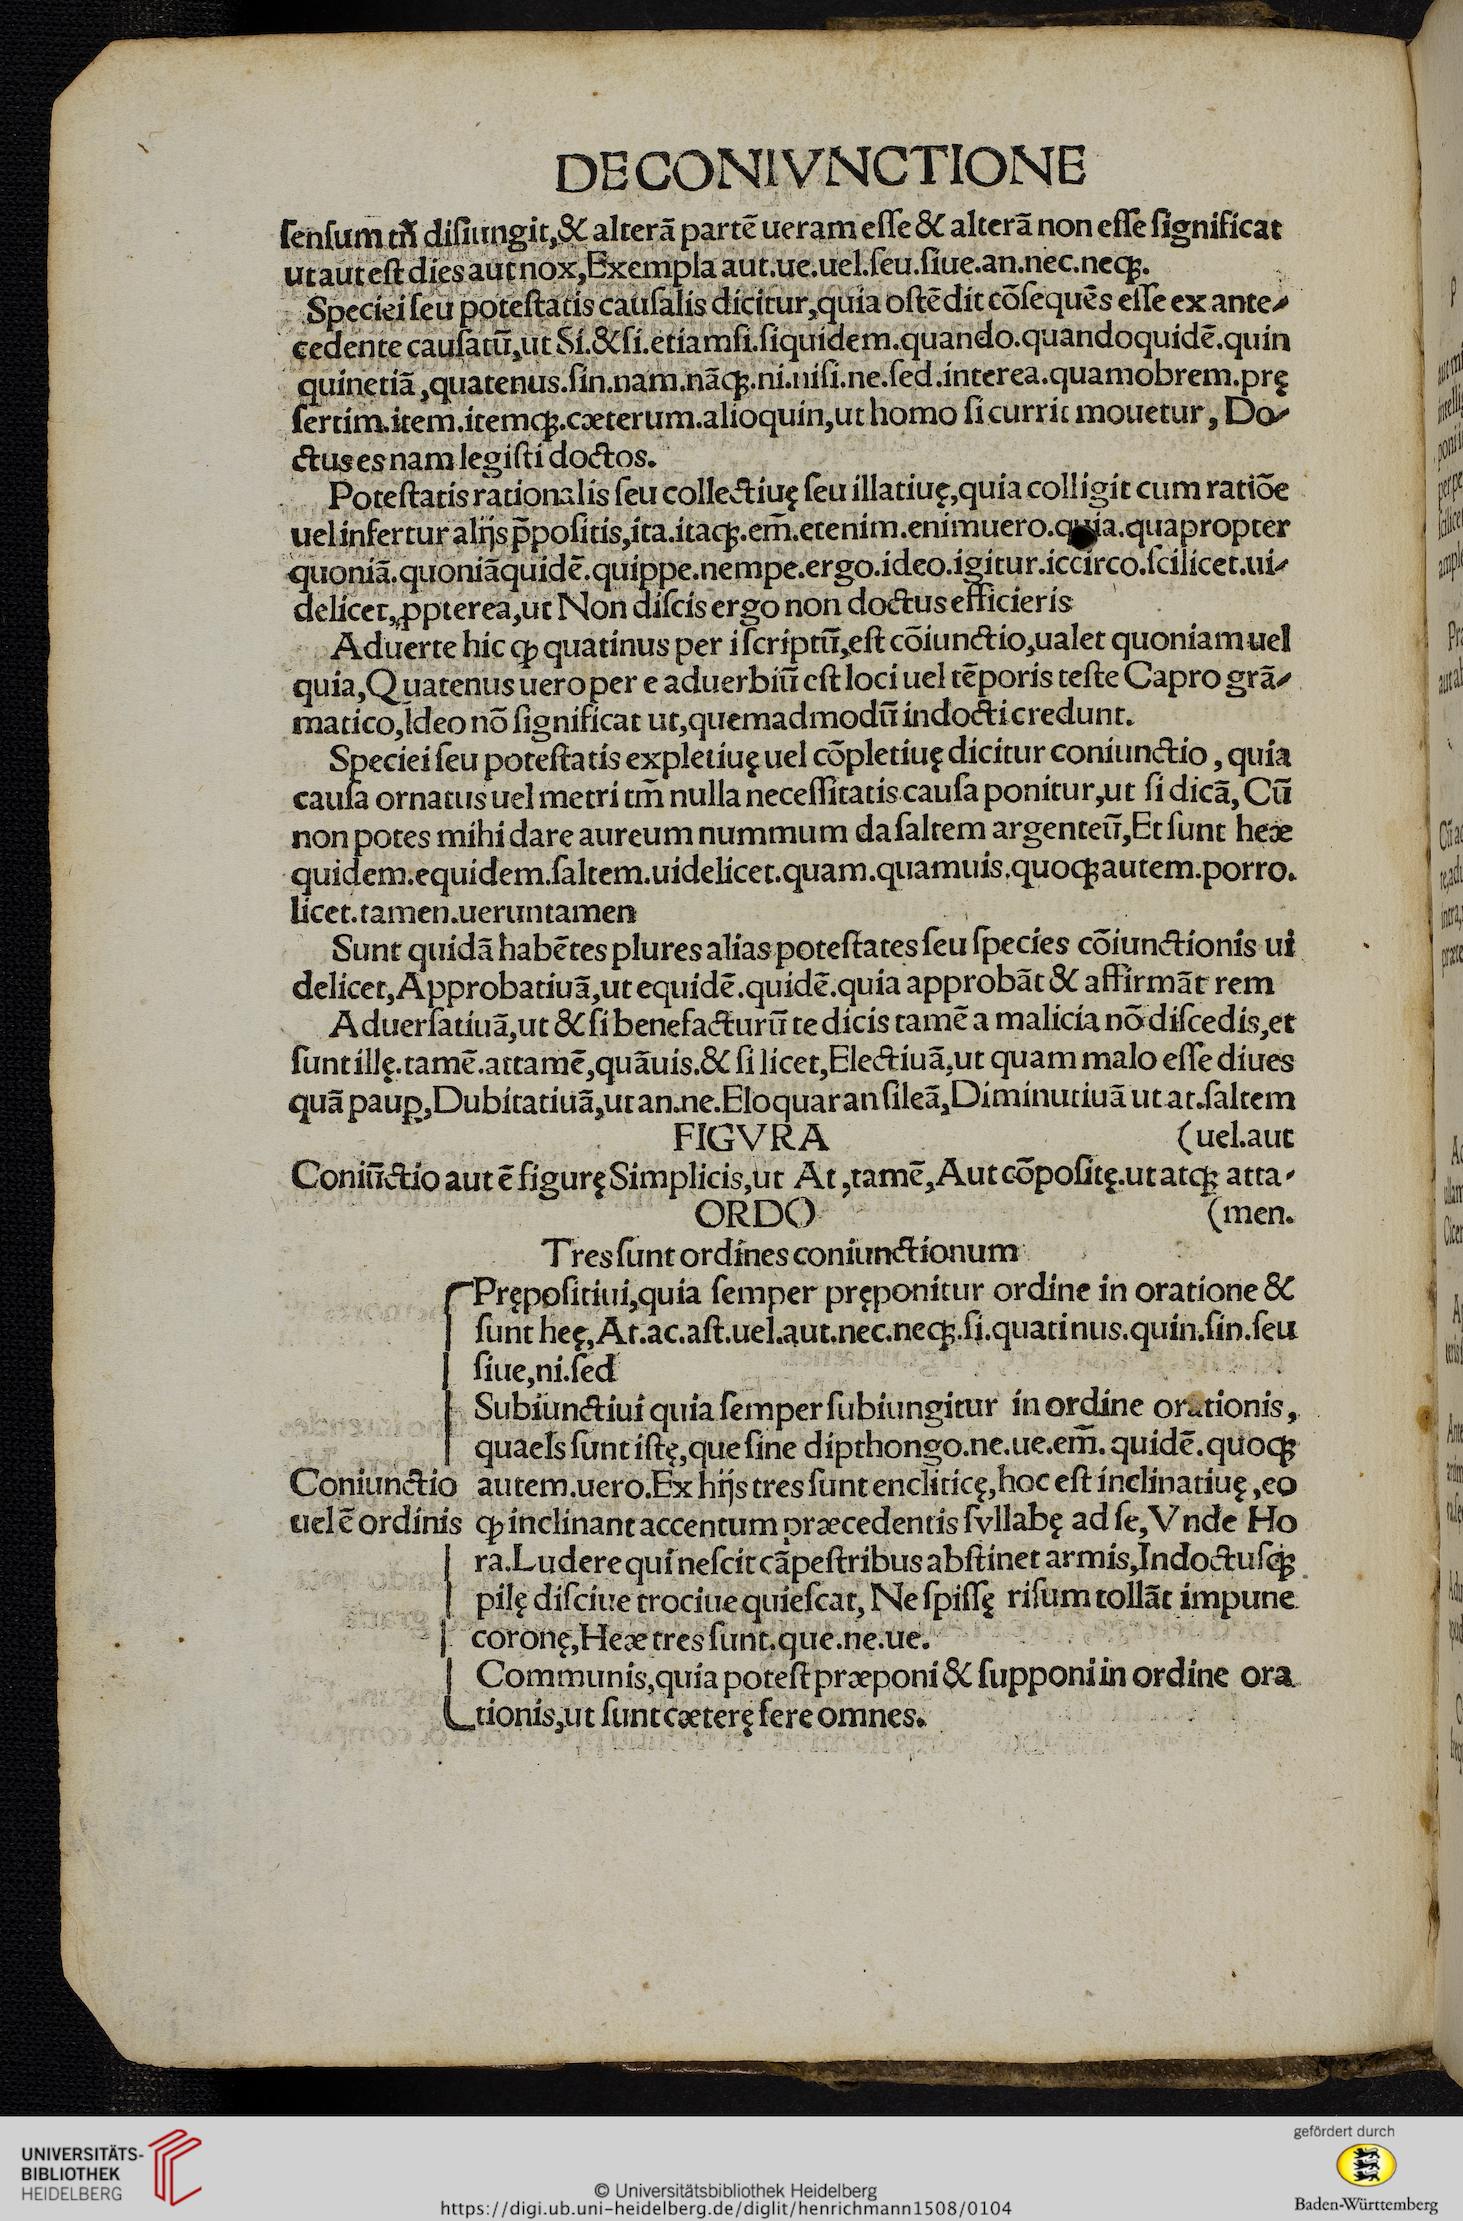 DE CONIVNCTIONE
ſenſum tñ diſiungit,& alterã partẽ ueram eſſe & alterã non eſſe ſignificat
ut aut eſt dies aut nox,Exempla aut.ue.uel.ſeu.ſiue.an.nec.neqꝫ.
Speciei ſeu poteſtatis cauſalis dicitur,quia oſtẽdit cõſequẽs eſſe ex ante⸗
cedente cauſatũ,ut Si.&ſi.etiamſi.ſiquidem.quando.quandoquidẽ.quin
quinetiã,quatenus.ſin.nam.nãqꝫ.ni.niſi.ne.ſed.interea.quamobrem.prę
ſertim.item.itemqꝫ.cæterum.alioquin,ut homo ſi currit mouetur, Do⸗
ctus es nam legiſti doctos.
Poteſtatis rationalis ſeu collectiuę ſeu illatiuę,quia colligit cum ratiõe
uel infertur alijs p̃poſitis,ita.itaqꝫ.em̃.etenim.enimuero.quia.quapropter
quoniã.quoniãquidẽ.quippe.nempe.ergo.ideo.igitur.iccirco.ſcilicet.ui⸗
delicet,ꝓpterea,ut Non diſcis ergo non doctus efficieris
Aduerte hic ꝙ quatinus per i ſcriptũ,eſt cõiunctio,ualet quoniam uel
quia,Quatenus uero per e aduerbiũ eſt loci uel tẽporis teſte Capro grã⸗
matico,Ideo nõ ſignificat ut,quemadmodũ indocti credunt.
Speciei ſeu poteſtatis expletiuę uel cõpletiuę dicitur coniunctio, quia
cauſa ornatus uel metri tm̃ nulla neceſſitatis cauſa ponitur,ut ſi dicã, Cũ
non potes mihi dare aureum nummum da ſaltem argenteũ,Et ſunt heæ
quidem.equidem.ſaltem.uidelicet.quam.quamuis.quoqꝫ autem.porro.
licet.tamen.ueruntamen
Sunt quidã habẽtes plures alias poteſtates ſeu ſpecies cõiunctionis ui
delicet,Approbatiuã,ut equidẽ.quidẽ.quia approbãt & affirmãt rem
Aduerſatiuã,ut & ſi benefacturũ te dicis tamẽ a malicia nõ diſcedis,et
ſunt illę.tamẽ.attamẽ,quãuis.& ſi licet,Electiuã,ut quam malo eſſe diues
quã paup̱,Dubitatiuã,ut an.ne.Eloquar an ſileã,Diminutiuã ut at.ſaltem
FIGVRA (uel.aut
Coniũctio aut ẽ figurę Simplicis,ut At,tamẽ,Aut cõpoſitę.ut atqꝫ atta⸗
ORDO (men.
Tres ſunt ordines coniunctionum
Prępoſitiui,quia ſemper pręponitur ordine in oratione &
ſunt heę,At.ac.aſt.uel.aut.nec.neqꝫ.ſi.quatinus.quin.ſin.ſeu
ſiue,ni.ſed
Subiunctiui quia ſemper ſubiungitur in ordine orationis,
quaels ſunt iſtę,que ſine dipthongo.ne.ue.em̃. quidẽ.quoqꝫ
Coniunctio autem.uero.Ex hijs tres ſunt encliticę,hoc eſt inclinatiuę,eo
uel ẽ ordinis ꝙ inclinant accentum præcedentis ſyllabę ad ſe,Vnde Ho
ra.Ludere qui neſcit cãpeſtribus abſtinet armis,Indoctuſqꝫ
pilę diſciue trociue quieſcat, Ne ſpiſſę riſum tollãt impune
coronę,Heæ tres ſunt.que.ne.ue.
Communis,quia poteſt præponi & ſupponi in ordine ora
tionis,ut ſunt cæterę fere omnes.
UNIVERSITÄTS-
BIBLIOTHEK
HEIDELBERG
© Universitätsbibliothek Heidelberg
https://digi.ub.uni-heidelberg.de/diglit/henrichmann1508/0104
gefördert durch
Baden-Württemberg